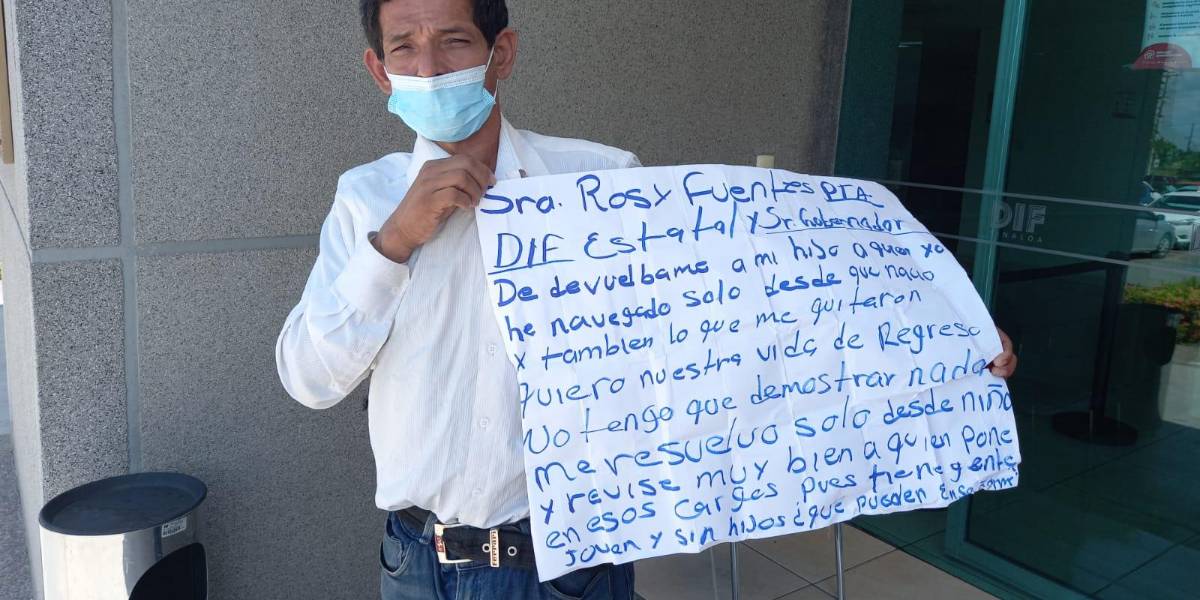 Sra. Rosy Fuentes PTA.
DIF Estatal y Sr. Gobernador
De devuelbame a mi hijo a quien yo
he navegado solo desde que nacio
y tambien lo que me quitaron
quiero nuestra vida de Regreso
No tengo que demostrar nada
me resuelvo solo desde niño
y revise muy bien a quien pone
en esos cargos pues tiene gente
joven y sin hijos ¿que pueden
DIF
SINALOA
Ferrari